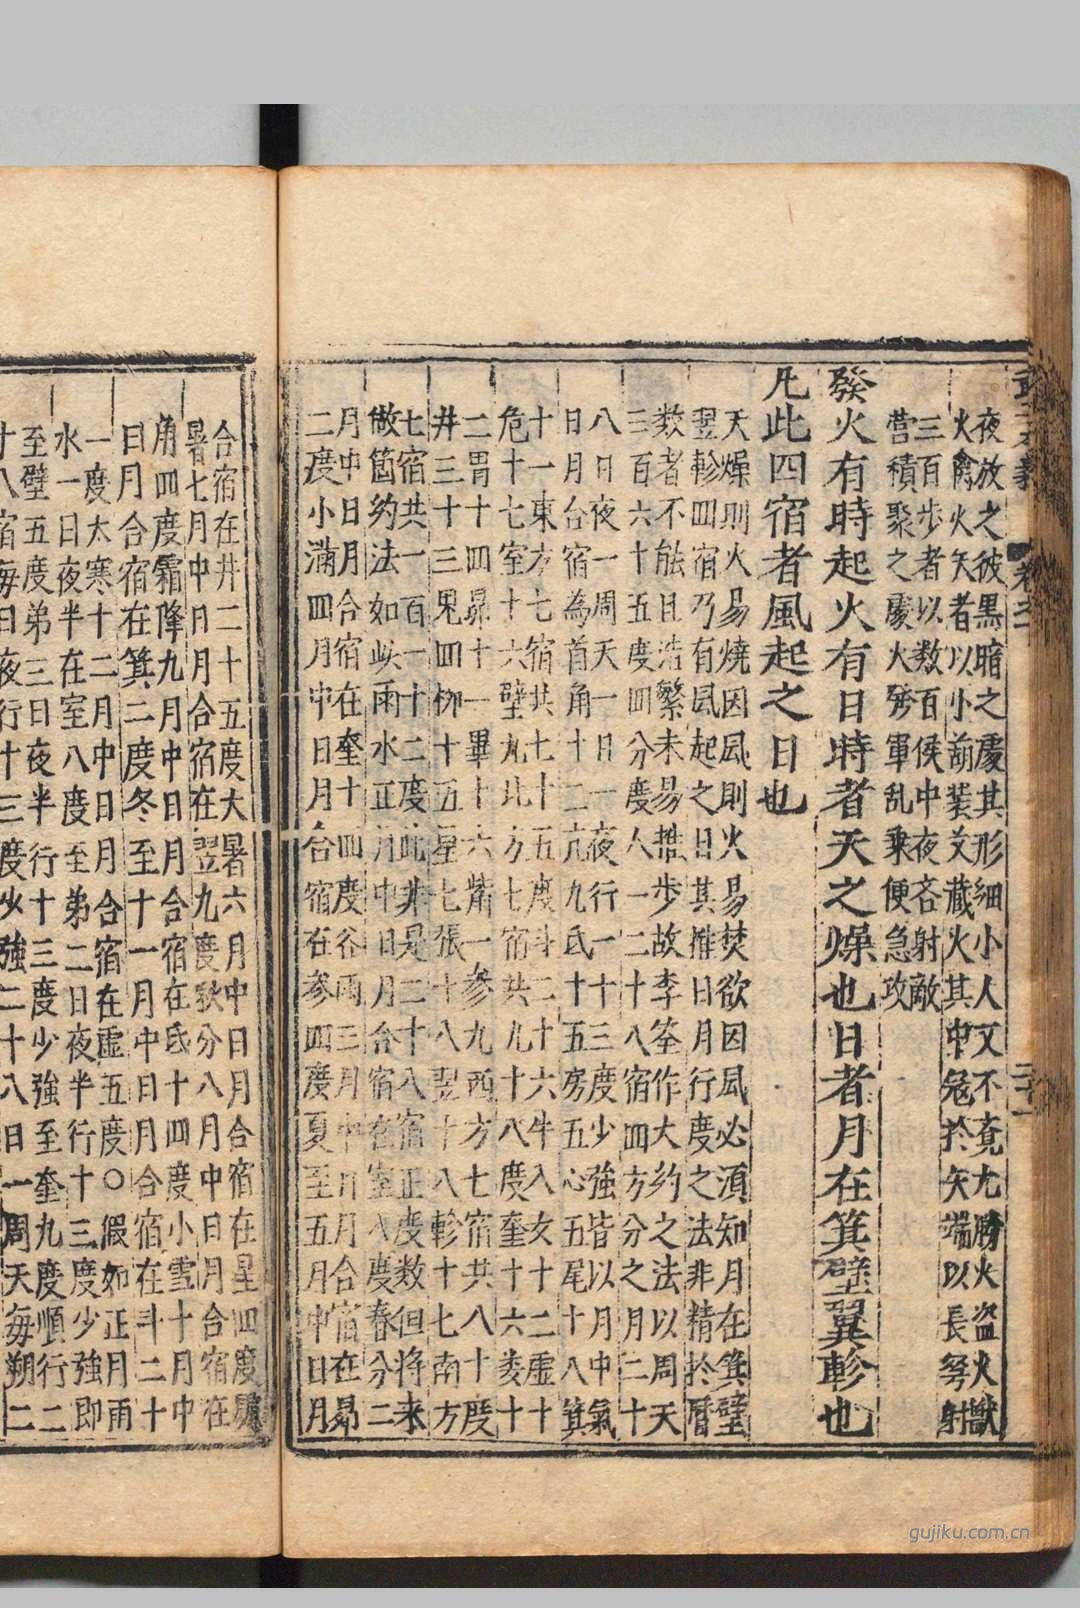 夜放之彼黒暗之處其形細小人又不竟尤勝火盗火獸
火禽火矢者以小葫蘆裝艾藏火其中冠於矢端以長弩射
三百步者以数百侯中夜吝射敵
营積聚之處火發軍乱乗便急攻
發火有時起火有日時者天之燥也日者月在箕壁翼軫也
凡此四宿者風起之日也
天燥則火易燒因風則火易焚欲因風必湏知月在箕壁
翌軫四宿乃有風起之日其推日月行度之法非精於曆
数者不能且浩繁未易揲歩故李筌作大約之法以周天
三百六十五度四分度人一二十八宿四方分之月二十
八日夜一周天一日一夜行一十三度少強皆以月中氣
日月合宿為首角十二亢九氐十五房五心五尾十八箕
十一東方七宿共七十五度斗二十六牛八女十二虛十
危十七室十六壁九北方七宿共九十八度奎十六婁十
二胃十四昴十一畢十六觜一參九西方七宿共八十度
井三十三鬼四柳十五星七張十八翌十八軫十七南方
七宿共一百一十二度此非是二十八宿正度数但将来
做箇約法如㫷雨水正月中日月合宿在室八度春分二
月中日月合宿在奎十四度谷雨三月中日月合宿在昴
二度小滿四月中日月合宿在参四度夏至五月中日月
合宿在井二十五度大暑六月中日月合宿在星四度處
暑七月中月月合宿在翌九度秋分八月中日月合宿在
角四度霜降九月中日月合宿在氐十四度小雪十月中
日月合宿在箕二度冬至十一月中日月合宿在斗二十
一度大寒十二月中日月合宿在虛五度○假如正月雨
水一日夜半在室八度至弟二日夜半行十三度少強即
至壁五度弟三日夜半行十三度少強至奎九度順行二
十八宿每日夜行十三度少強二十八日一周天每朔二